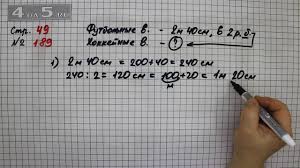 4on5.ru
Стр. 49
№ 189
Футбольные в. - 2м 40см, в 2 р. б.
Хоккейные в. - ?
1) 2м 40см = 200+40 = 240 см
240 : 2 = 120 см = 100+20 = 1м 20см
м